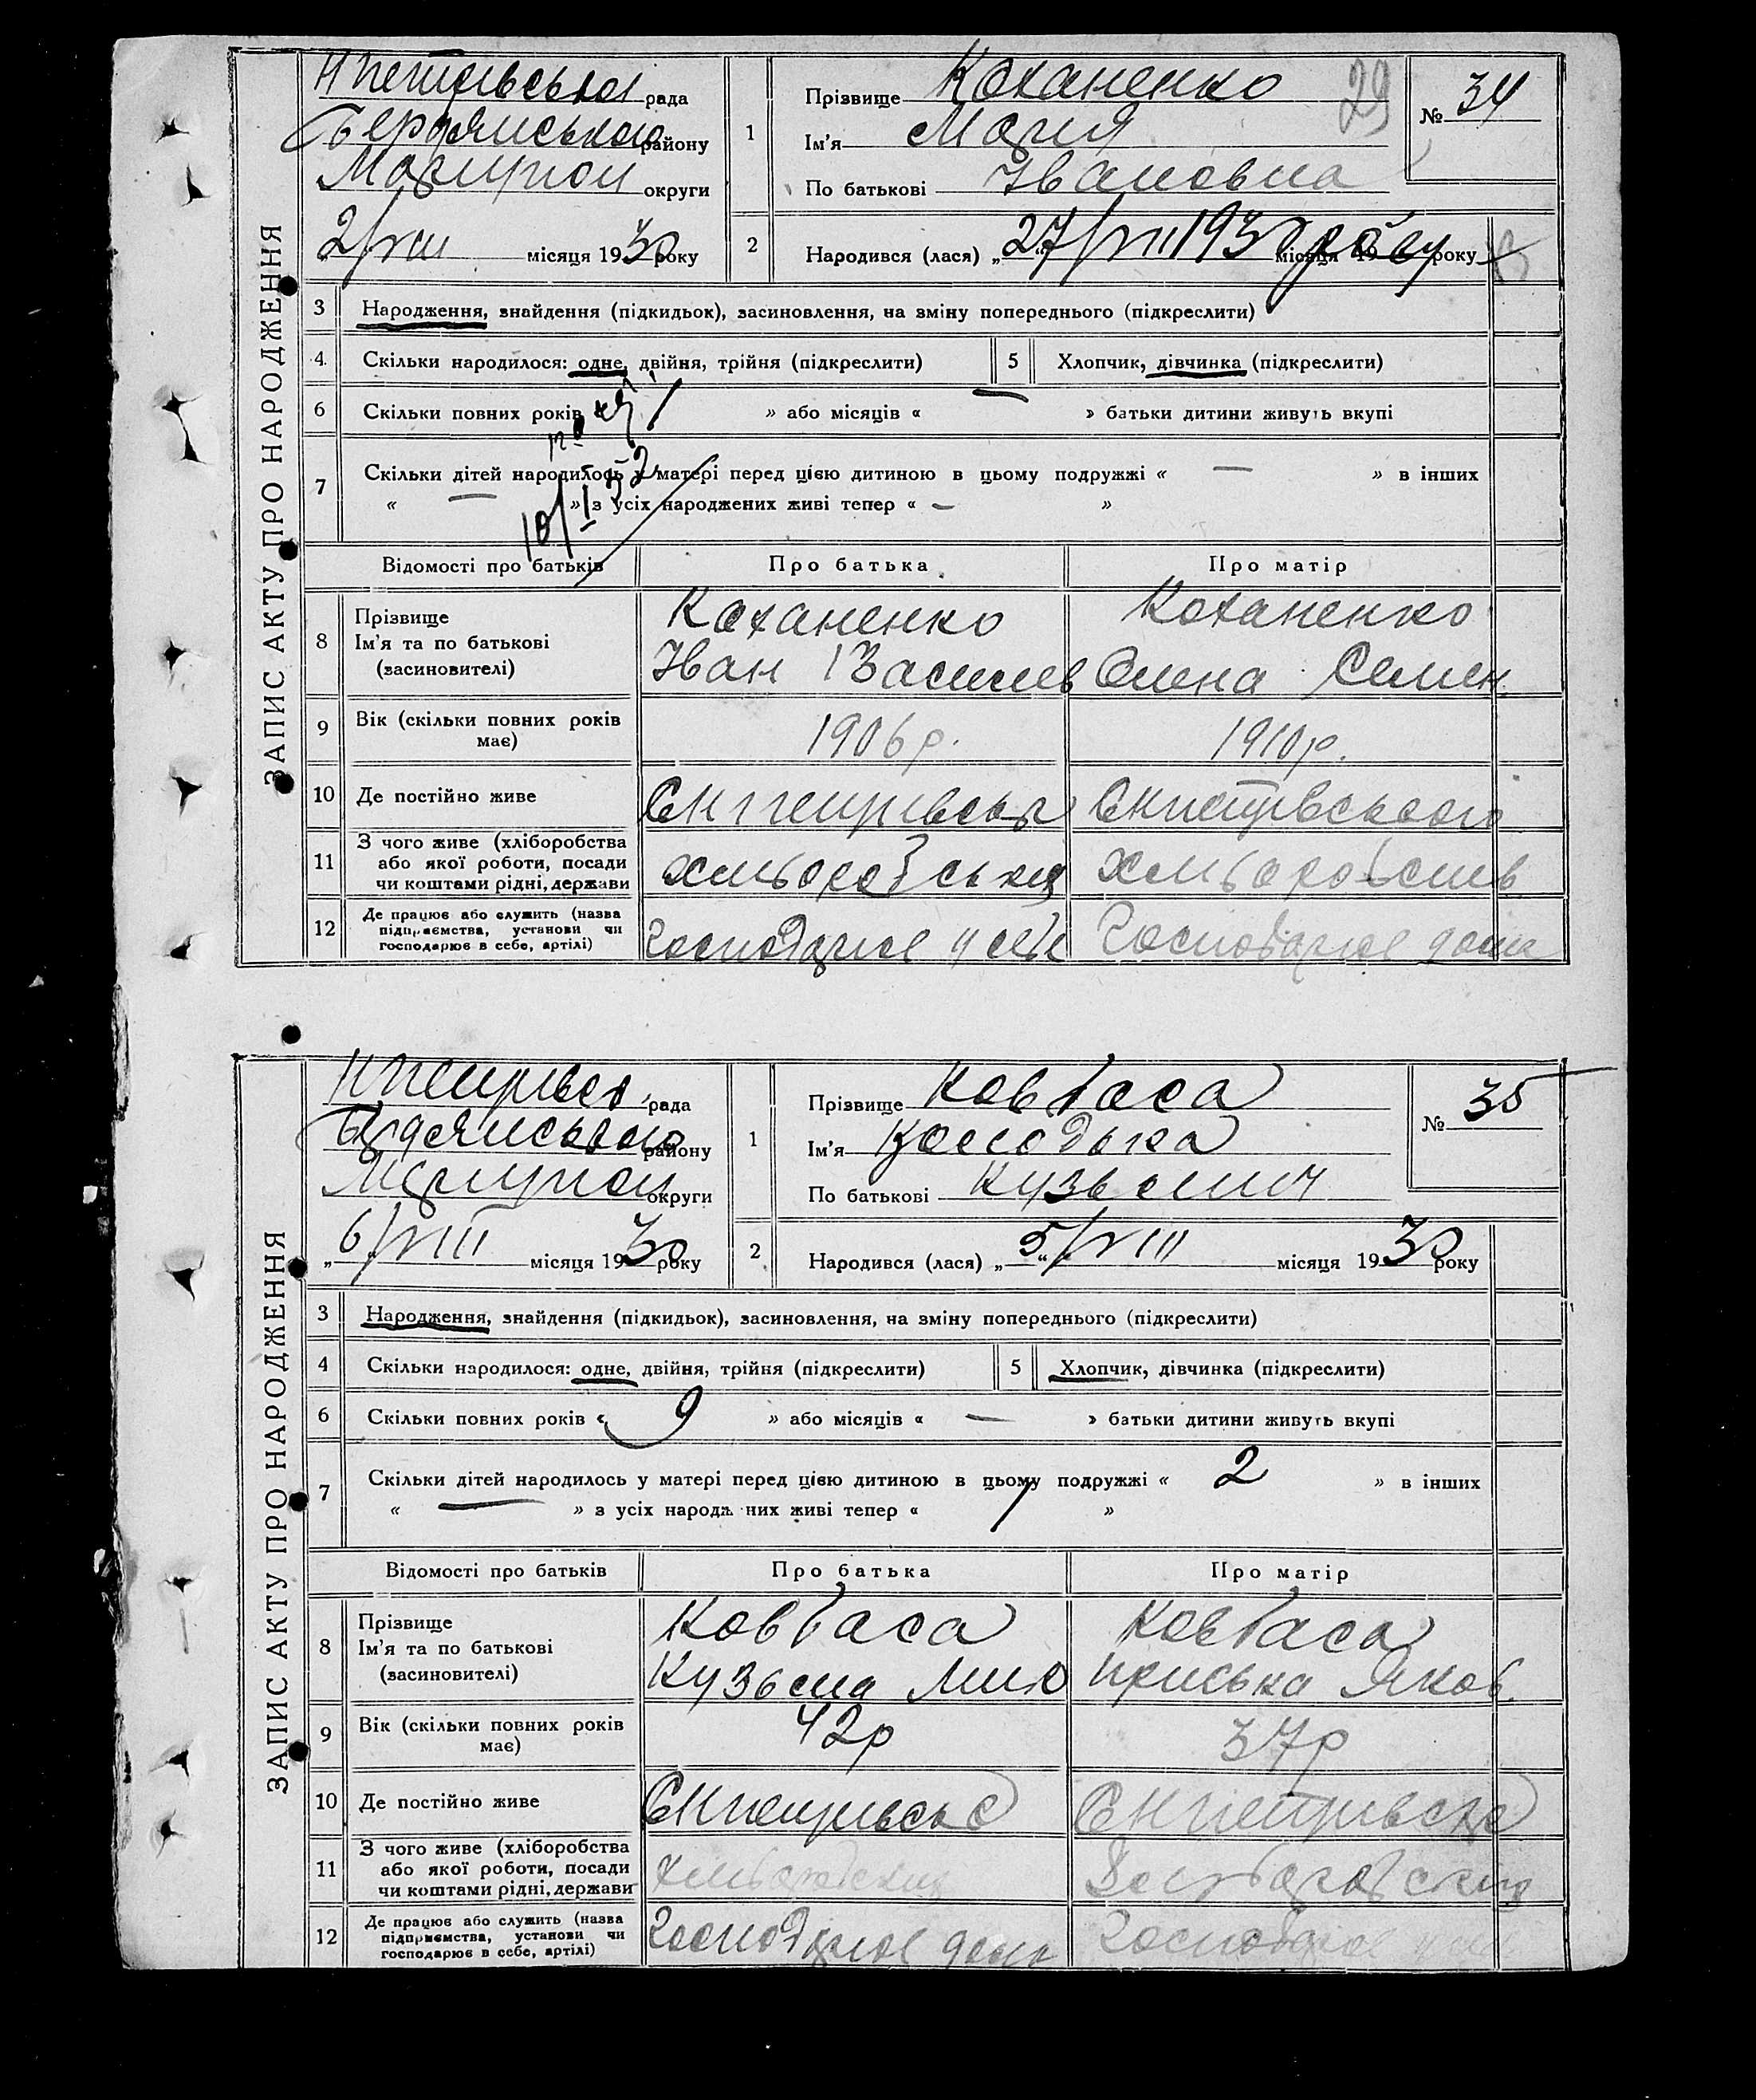 ЗАПИС АКТУ ПРО НАРОДЖЕННЯ
Нпетрівська рада
Бердянського району
Маріупол округи
2/VIII місяця 1930 року
1
Прізвище Коханенко
Ім'я Марія
По батькові Івановна
29
№ 34
2 Народився (лася) „27/VII 1930 року місяця 19 року
3 Народження, знайдення (підкидьок), засиновлення, на зміну попереднього (підкреслити)
4 Скільки народилося: одне, двійня, трійня (підкреслити) 5 Хлопчик, дівчинка (підкреслити)
6 Скільки повних років » або місяців « » батьки дитини живуть вкупі
7 Скільки дітей народилось у матері перед цією дитиною в цьому подружжі « — » в інших
« — » з усіх народжених живі тепер « — »
Відомості про батьків Про батька Про матір
8 Прізвище Коханенко Коханенко
Ім'я та по батькові Іван Васильев Олена Семен.
(засновителі)
9 Вік (скільки повних років має) 1906 р. 1910 р.
10 Де постійно живе
11 З чого живе (хліборобства або якої роботи, посади чи коштами рідні, держави
12 Де працює або служить (назва підприємства, установи чи господарює в себе, артілі) Господарює Господарює дома
ЗАПИС АКТУ ПРО НАРОДЖЕННЯ
рада
Бердянського району
Маріупол округи
„6/VIII місяця 1930 року
1
Прізвище Ковбаса
Ім'я
По батькові Кузьмич
№ 35
2 Народився (лася) „5/VIII місяця 1930 року
3 Народження, знайдення (підкидьок), засиновлення, на зміну попереднього (підкреслити)
4 Скільки народилося: одне, двійня, трійня (підкреслити) 5 Хлопчик, дівчинка (підкреслити)
6 Скільки повних років « 9 » або місяців « — » батьки дитини живуть вкупі
7 Скільки дітей народилось у матері перед цією дитиною в цьому подружжі « 2 » в інших
« — » з усіх народжених живі тепер « 1 »
Відомості про батьків Про батька Про матір
8 Прізвище Ковбаса Ковбаса
Ім'я та по батькові Кузьма Приська Яков.
(засиновителі)
9 Вік (скільки повних років має) 42р 37р
10 Де постійно живе
11 З чого живе (хліборобства або якої роботи, посади чи коштами рідні, держави
12 Де працює або служить (назва підприємства, установи чи господарює в себе, артілі) Господарює дома Господарює